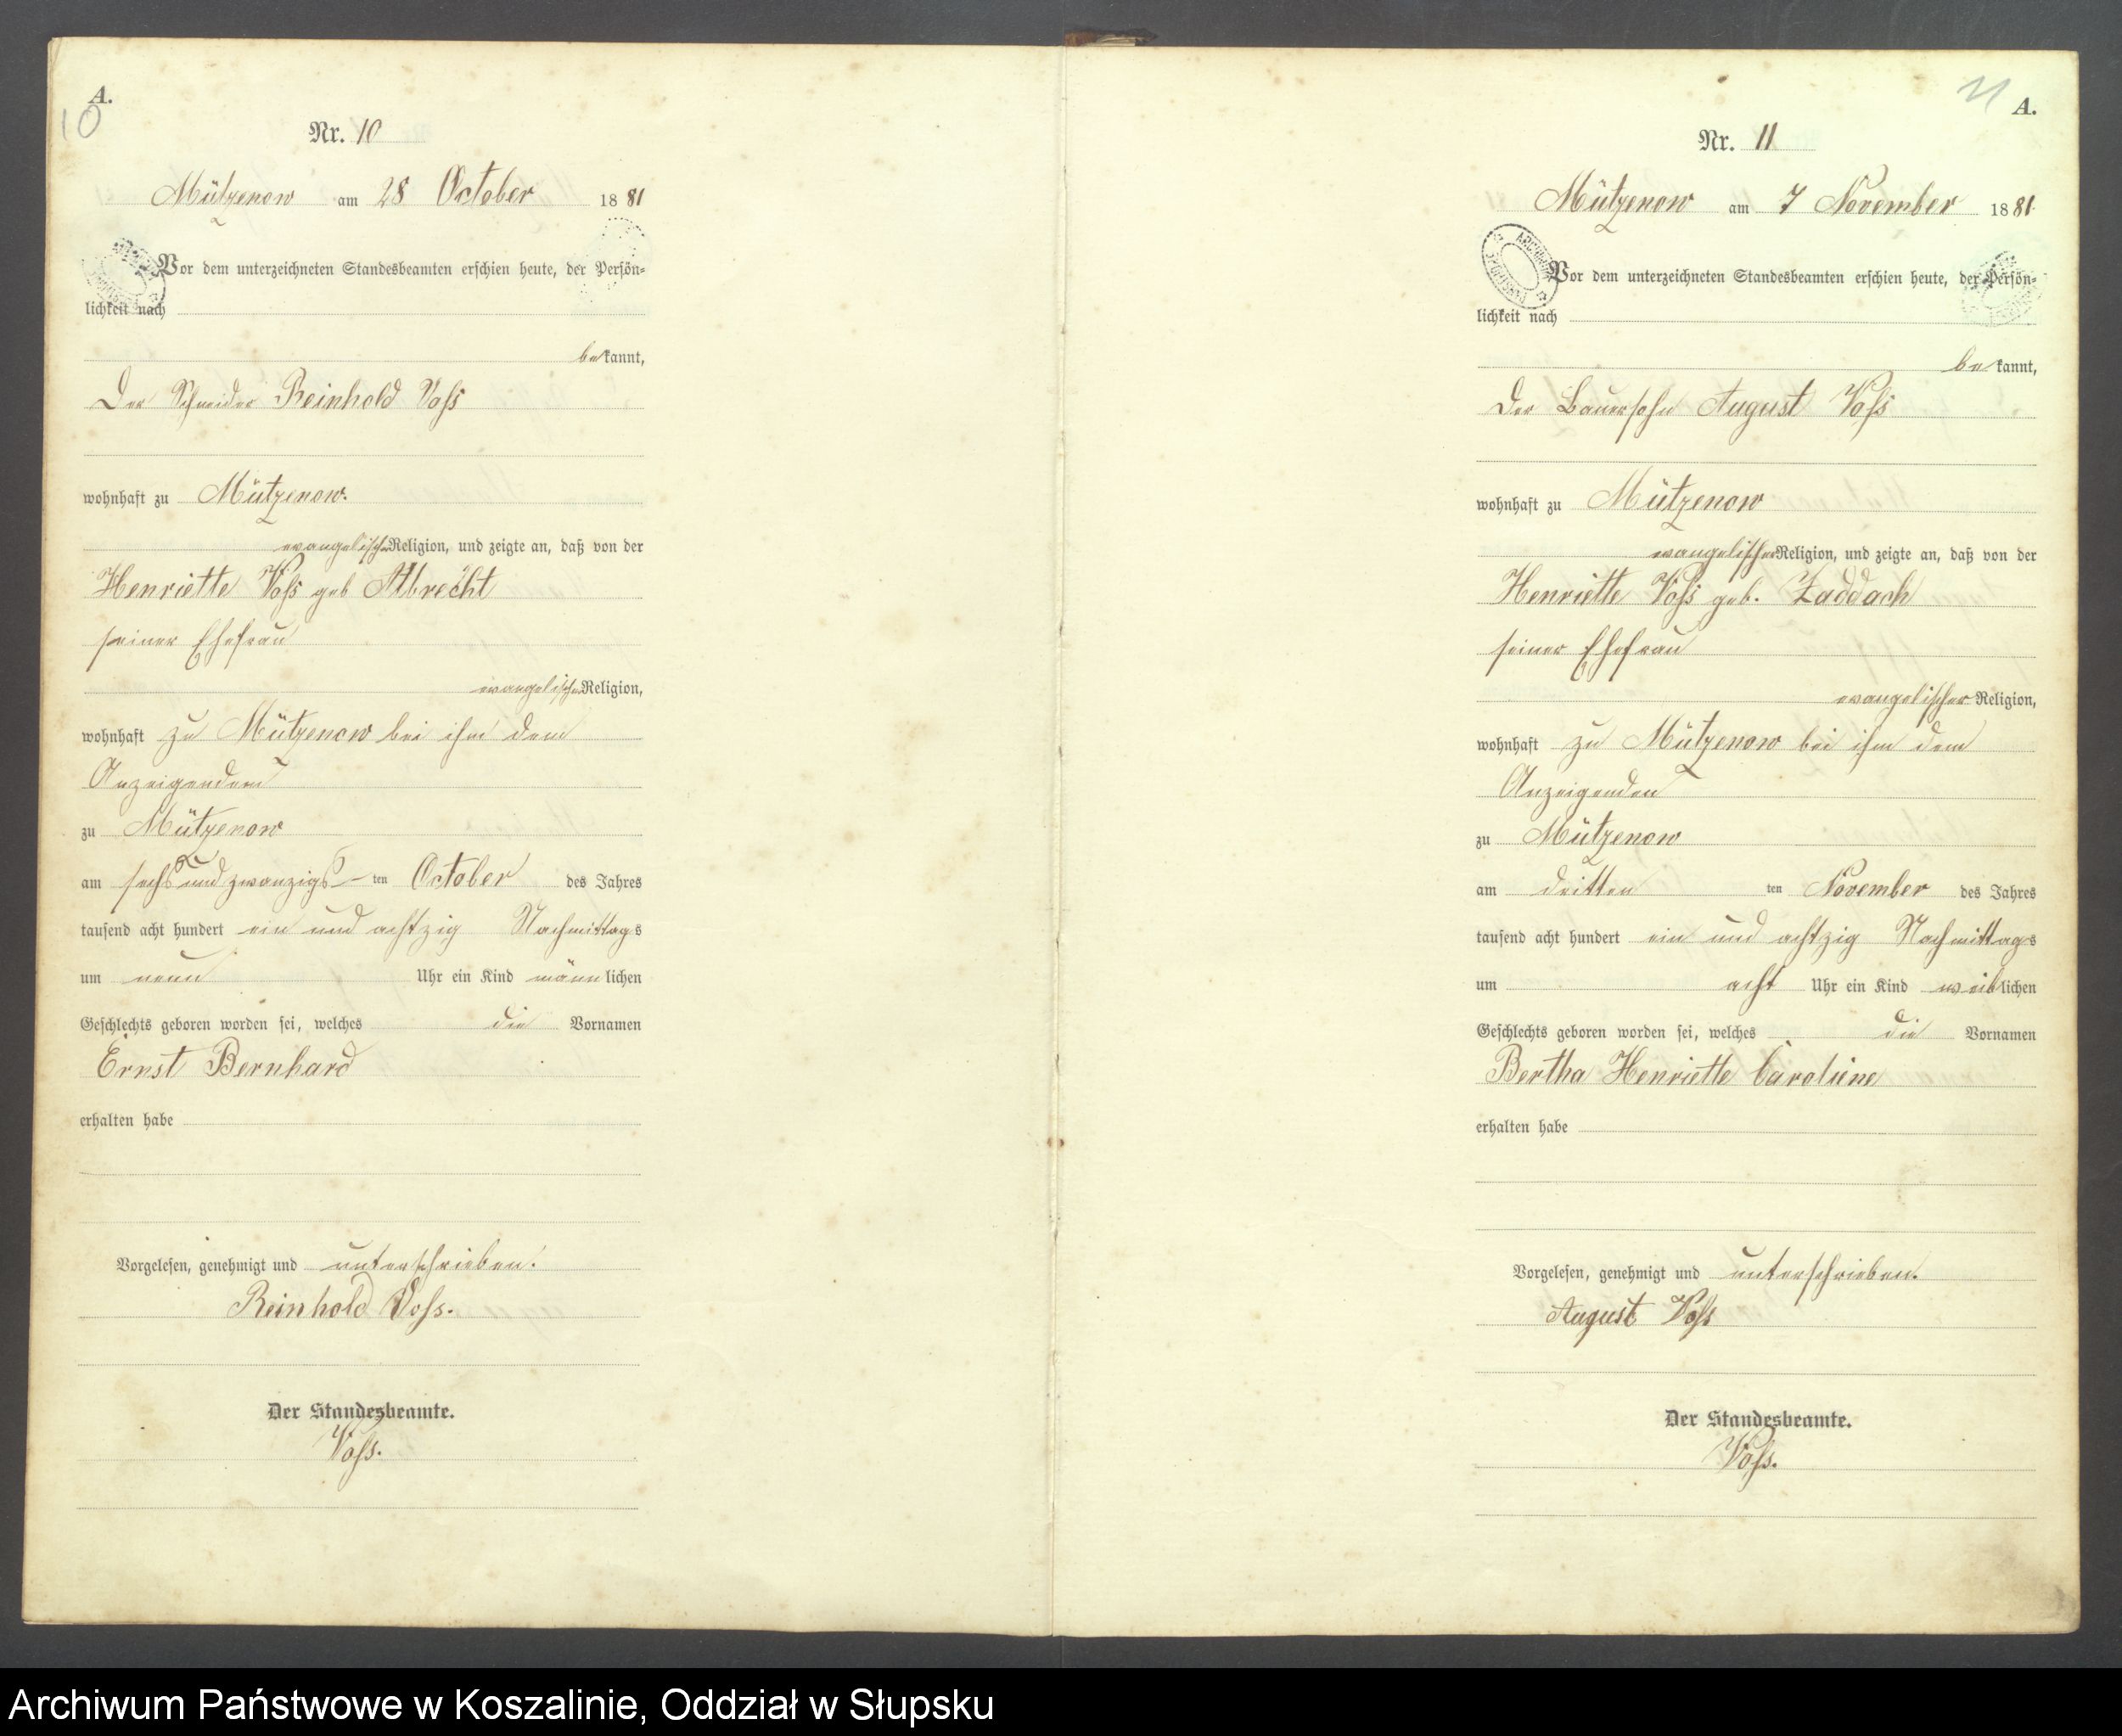 A.
10
Nr. 10
Mützenow am 28 October 1881
Vor dem unterzeichneten Standesbeamten erschien heute, der Persön=
lichkeit nach
bekannt,
Der Schneider Reinhold Voß
wohnhaft zu Mützenow.
evangelischer Religion, und zeigte an, daß von der
Henriette Voß geb Albrecht
seiner Ehefrau
evangelischer Religion,
wohnhaft zu Mützenow bei ihm dem
Anzeigenden
zu Mützenow
am sechsundzwanzigsten October des Jahres
tausend acht hundert ein und achtzig Nachmittags
um neun Uhr ein Kind männlichen
Geschlechts geboren worden sei, welches die Vornamen
Ernst Bernhard
erhalten habe
Vorgelesen, genehmigt und unterschrieben.
Reinhold Voss.
Der Standesbeamte.
Voss.
11
A.
Nr. 11
Mützenow am 7 November 1881
Vor dem unterzeichneten Standesbeamten erschien heute, der Persön=
lichkeit nach
bekannt,
Der Bauersohn August Voß
wohnhaft zu Mützenow
evangelischer Religion, und zeigte an, daß von der
Henriette Voß geb. Zaddach
seiner Ehefrau
evangelischer Religion,
wohnhaft zu Mützenow bei ihm dem
Anzeigenden
zu Mützenow
am dritten ten November des Jahres
tausend acht hundert ein und achtzig Nachmittags
um acht Uhr ein Kind weiblichen
Geschlechts geboren worden sei, welches die Vornamen
Bertha Henriette Caroline
erhalten habe
Vorgelesen, genehmigt und unterschrieben.
August Voß
Der Standesbeamte.
Voss.
Archiwum Państwowe w Koszalinie, Oddział w Słupsku